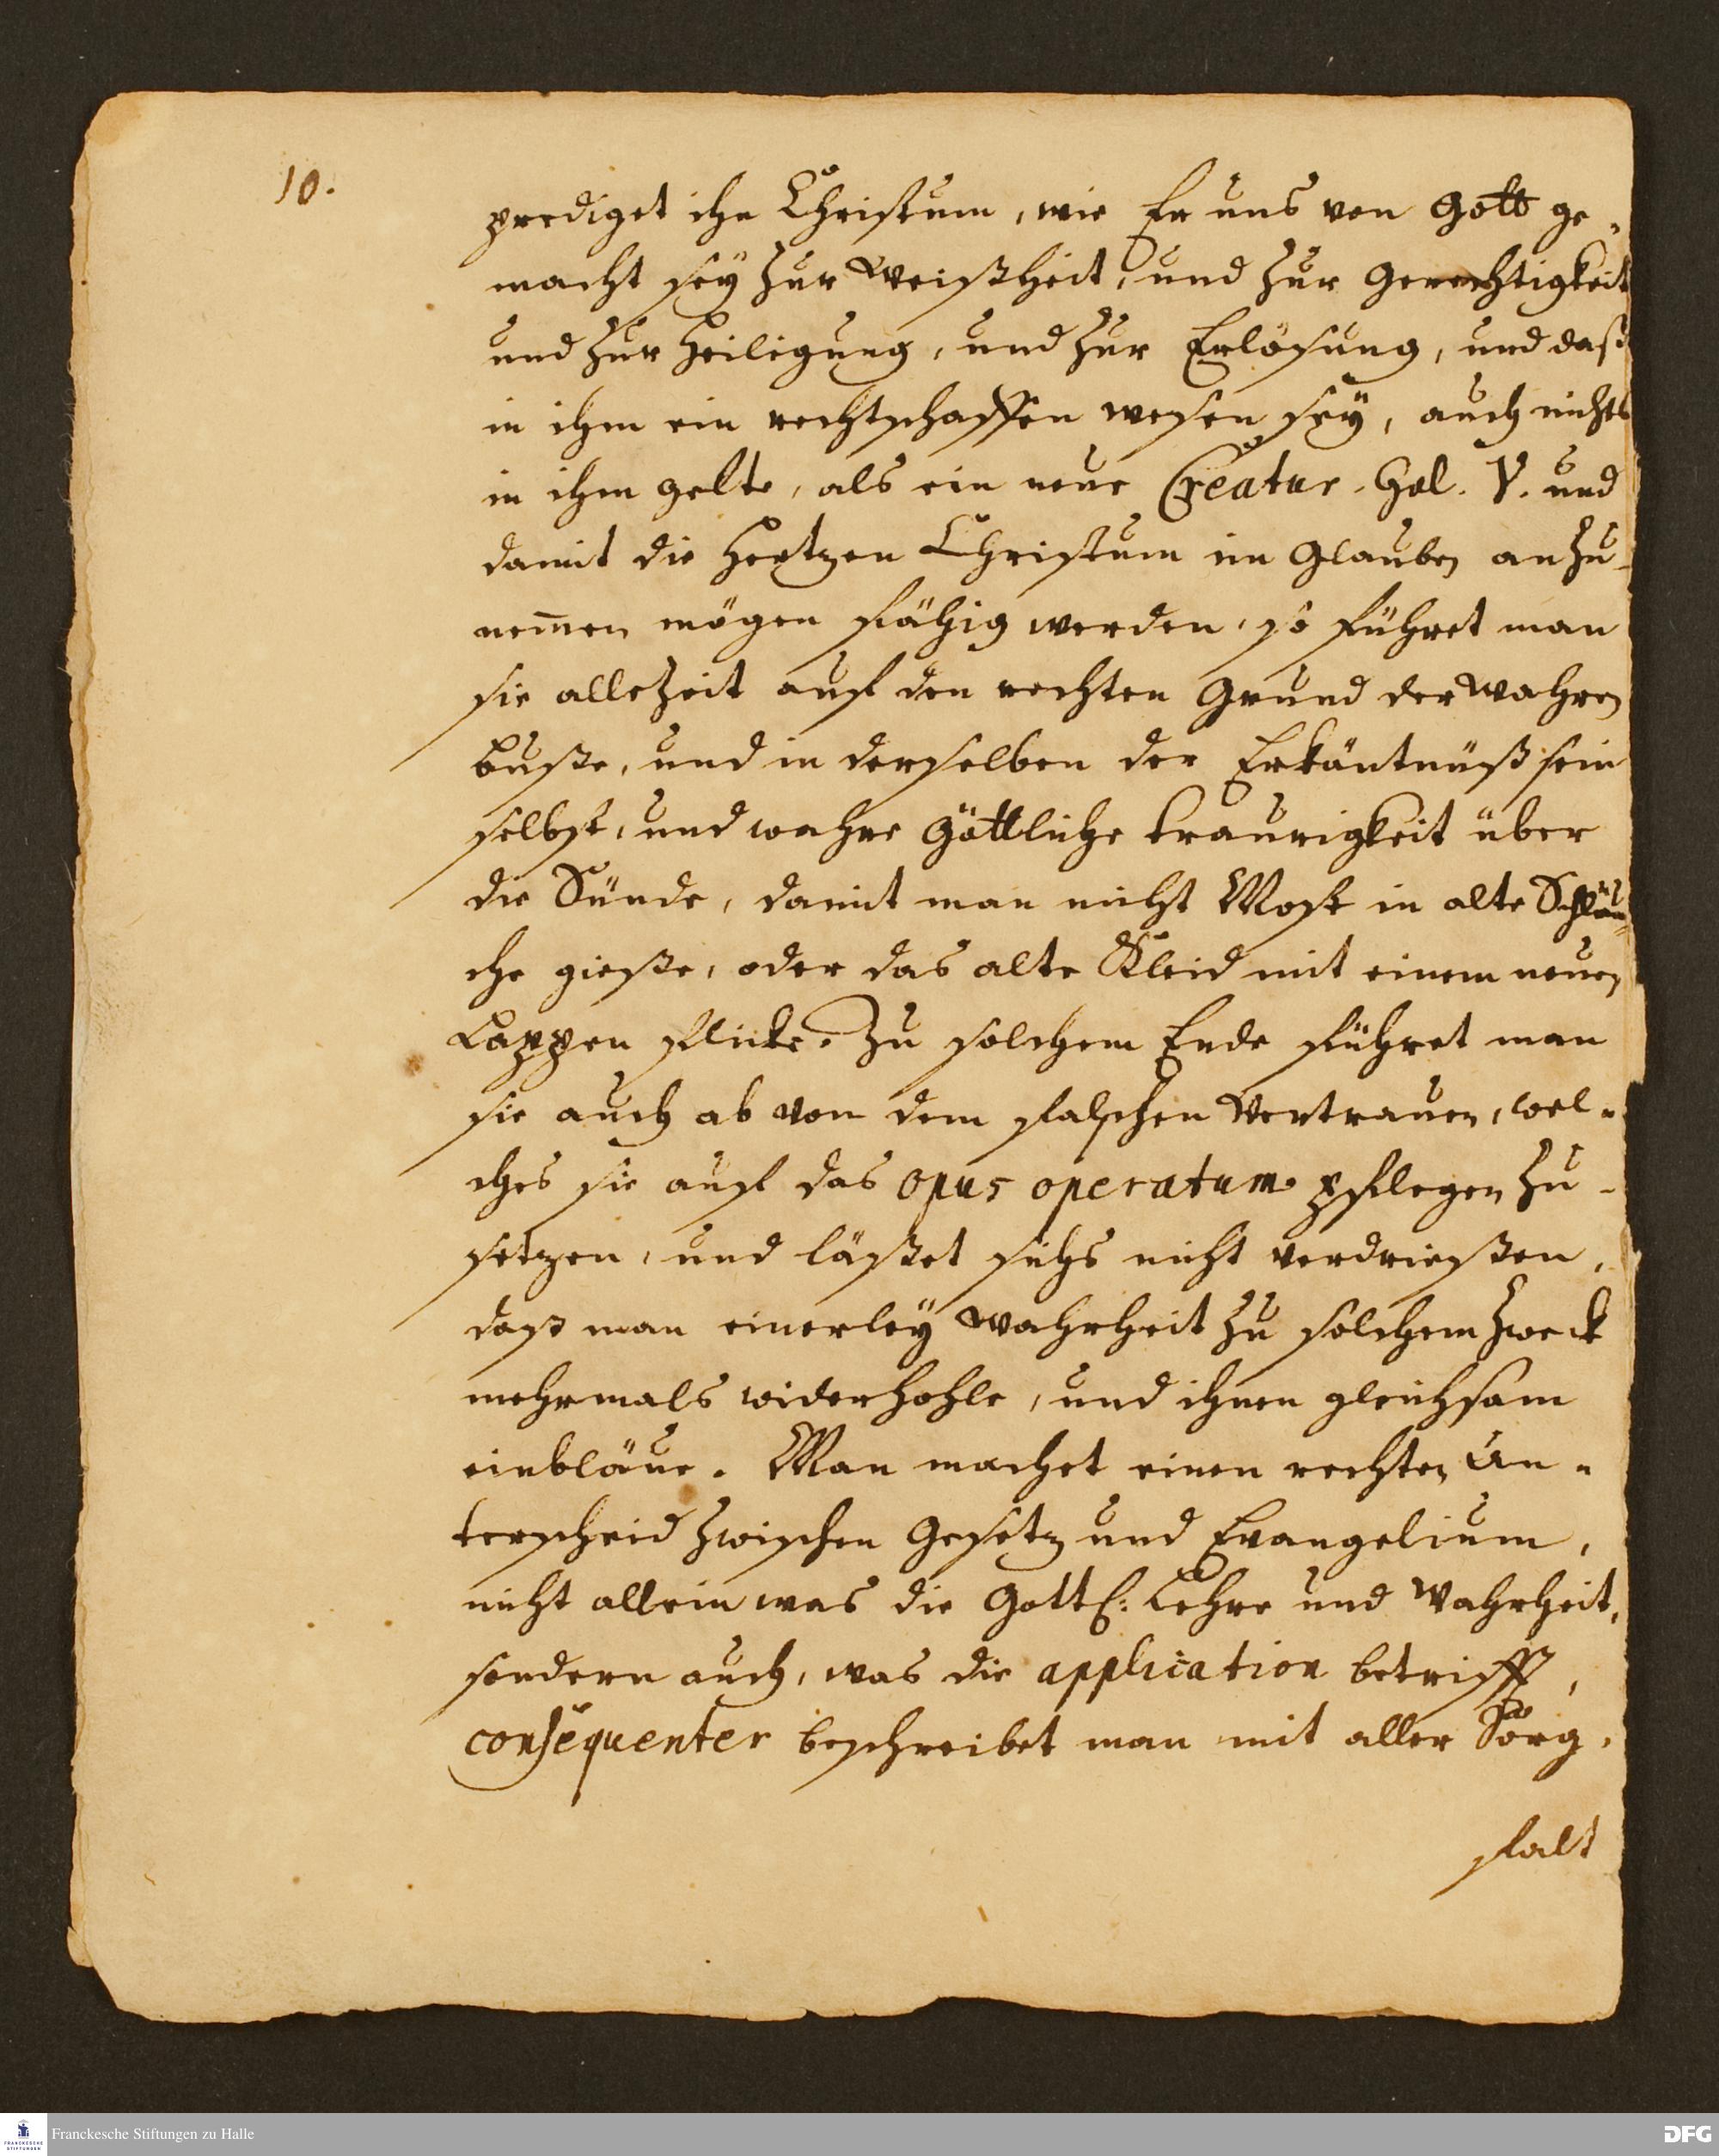 10.
prediget ihn Christum, wie Er uns von Gott ge-
macht sey zur Weißheit, und zur Gerechtigkeit
und zur Heiligung, und zur Erlösung, und daß
in ihm ein rechtschaffen wesen sey, auch nichts
in ihm gelte, als ein neue Creatur. Gal. V. und
damit die Hertzen Christum im Glauben anzu-
nem̄en mögen fähig werden, so führet man
sie allezeit auf den rechten Grund der wahren
buße, und in derselben der Erkäntnüß sein
selbst, und wahre Göttliche traurigkeit über
die Sünde, damit man nicht Most in alte Schläu-
che gieße, oder das alte Kleid mit einem neuen
Lappen flicke. Zu solchem Ende führet man
sie auch ab von dem falschen Vertrauen, wel-
ches sie auf das opus operatum pflegen zu-
setzen, und läßet sichs nicht verdrießen,
daß man einerley Wahrheit zu solchem Zweck
mehrmals widerhohle, und ihnen gleichsam
einbläue. Man machet einen rechten Un-
terscheid zwischen Gesetz und Evangelium,
nicht allein was die Gottl: Lehre und Wahrheit,
sondern auch, was die application betrifft,
consequenter beschreibet man mit aller Sorg-
falt
Franckesche Stiftungen zu Halle
FRANCKESCHE
STIFTUNGEN
DFG